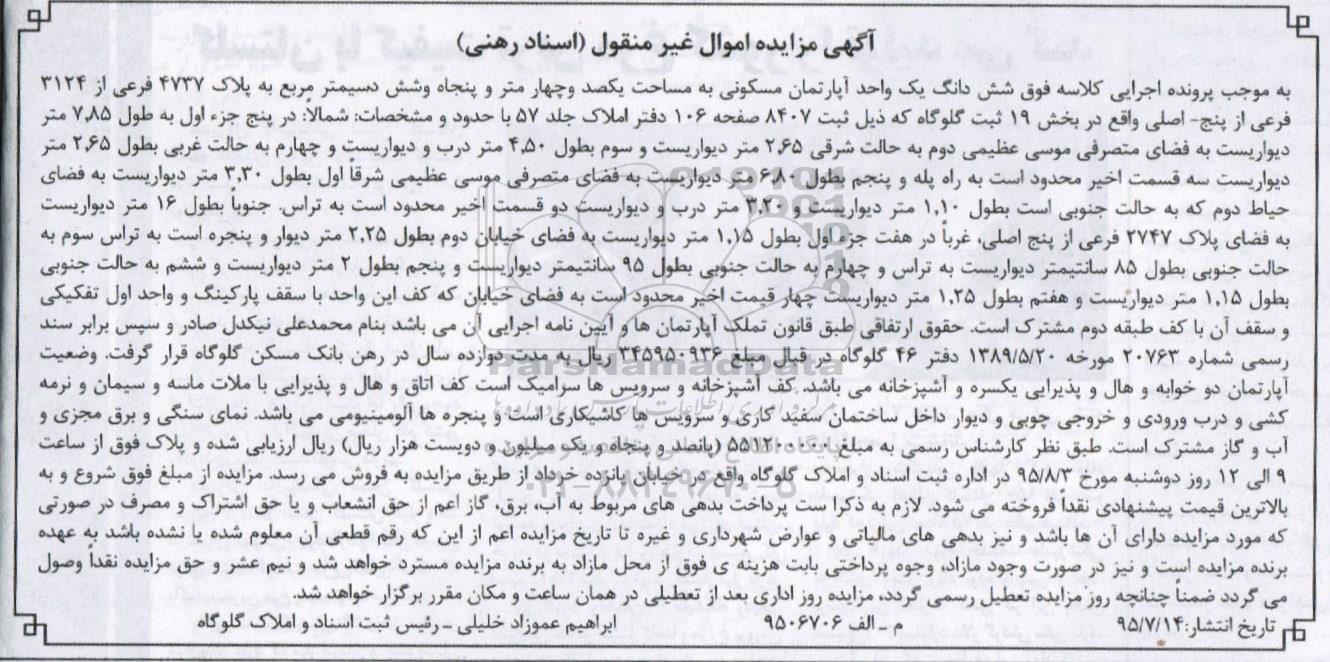 آگهی مزایده اموال غیر منقول (اسناد رهنی)
به موجب پرونده اجرایی کلاسه فوق شش دانگ یک واحد آپارتمان مسکونی به مساحت یکصد وچهار متر و پنجاه وشش دسیمتر مربع به پلاک ۴۷۳۷ فرعی از ۳۱۲۴
فرعی از پنج- اصلی واقع در بخش ۱۹ ثبت گلوگاه که ذیل ثبت ۸۴۰۷ صفحه ۱۰۶ دفتر املاک جلد ۵۷ با حدود و مشخصات: شمالاً: در پنج جزء اول به طول ۷,۸۵ متر
دیواریست به فضای متصرفی موسی عظیمی دوم به حالت شرقی ۲,۶۵ متر دیواریست و سوم بطول ۴,۵۰ متر درب و دیواریست و چهارم به حالت غربی بطول ۲,۶۵ متر
دیواریست سه قسمت اخیر محدود است به راه پله و پنجم بطول ۶,۸۰ متر دیواریست به فضای متصرفی موسی عظیمی شرقاً اول بطول ۳,۳۰ متر دیواریست به فضای
حیاط دوم که به حالت جنوبی است بطول ۱,۱۰ متر دیواریست و ۳,۲۰ متر درب و دیواریست دو قسمت اخیر محدود است به تراس. جنوباً بطول ۱۶ متر دیواریست
به فضای پلاک ۲۷۴۷ فرعی از پنج اصلی، غرباً در هفت جزء اول بطول ۱,۱۵ متر دیواریست به فضای خیابان دوم بطول ۲,۲۵ متر دیوار و پنجره است به تراس سوم به
حالت جنوبی بطول ۸۵ سانتیمتر دیواریست به تراس و چهارم به حالت جنوبی بطول ۹۵ سانتیمتر دیواریست و پنجم بطول ۲ متر دیواریست و ششم به حالت جنوبی
بطول ۱,۱۵ متر دیواریست و هفتم بطول ۱,۲۵ متر دیواریست چهار قیمت اخیر محدود است به فضای خیابان که کف این واحد با سقف پارکینگ و واحد اول تفکیکی
و سقف آن با کف طبقه دوم مشترک است. حقوق ارتفاقی طبق قانون تملک آپارتمان ها و آیین نامه اجرایی آن می باشد بنام محمدعلی نیکدل صادر و سپس برابر سند
رسمی شماره ۲۰۷۶۳ مورخه ۱۳۸۹/۵/۲۰ دفتر ۴۶ گلوگاه در قبال مبلغ ۳۴۵۹۵۰۹۳۶ ریال به مدت دوازده سال در رهن بانک مسکن گلوگاه قرار گرفت. وضعیت
آپارتمان دو خوابه و هال و پذیرایی یکسره و آشپزخانه می باشد. کف آشپزخانه و سرویس ها سرامیک است کف اتاق و هال و پذیرایی با ملات ماسه و سیمان و نرمه
کشی و درب ورودی و خروجی چوبی و دیوار داخل ساختمان سفید کاری و سرویس ها کاشیکاری است و پنجره ها آلومینیومی می باشد. نمای سنگی و برق مجزی و
آب و گاز مشترک است. طبق نظر کارشناس رسمی به مبلغ (پانصد و پنجاه و یک میلیون و دویست هزار ریال) ریال ارزیابی شده و پلاک فوق از ساعت
۹ الی ۱۲ روز دوشنبه مورخ ۹۵/۸/۳ در اداره ثبت اسناد و املاک گلوگاه واقع در خیابان پانزده خرداد از طریق مزایده به فروش می رسد. مزایده از مبلغ فوق شروع و به
بالاترین قیمت پیشنهادی نقداً فروخته می شود. لازم به ذکرا ست پرداخت بدهی های مربوط به آب، برق، گاز اعم از حق انشعاب و یا حق اشتراک و مصرف در صورتی
که مورد مزایده دارای آن ها باشد و نیز بدهی های مالیاتی و عوارض شهرداری و غیره تا تاریخ مزایده اعم از این که رقم قطعی آن معلوم شده یا نشده باشد به عهده
برنده مزایده است و نیز در صورت وجود مازاد، وجوه پرداختی بابت هزینه ی فوق از محل مازاد به برنده مزایده مسترد خواهد شد و نیم عشر و حق مزایده نقداً وصول
می گردد ضمنا چنانچه روز مزایده تعطیل رسمی گردد، مزایده روز اداری بعد از تعطیلی در همان ساعت و مکان مقرر برگزار خواهد شد.
تاریخ انتشار:۹۵/۷/۱۴ م- الف ۹۵۰۶۷۰۶ ابراهیم عموزاد خلیلی - رئیس ثبت اسناد و املاک گلوگاه
ParsNamadData